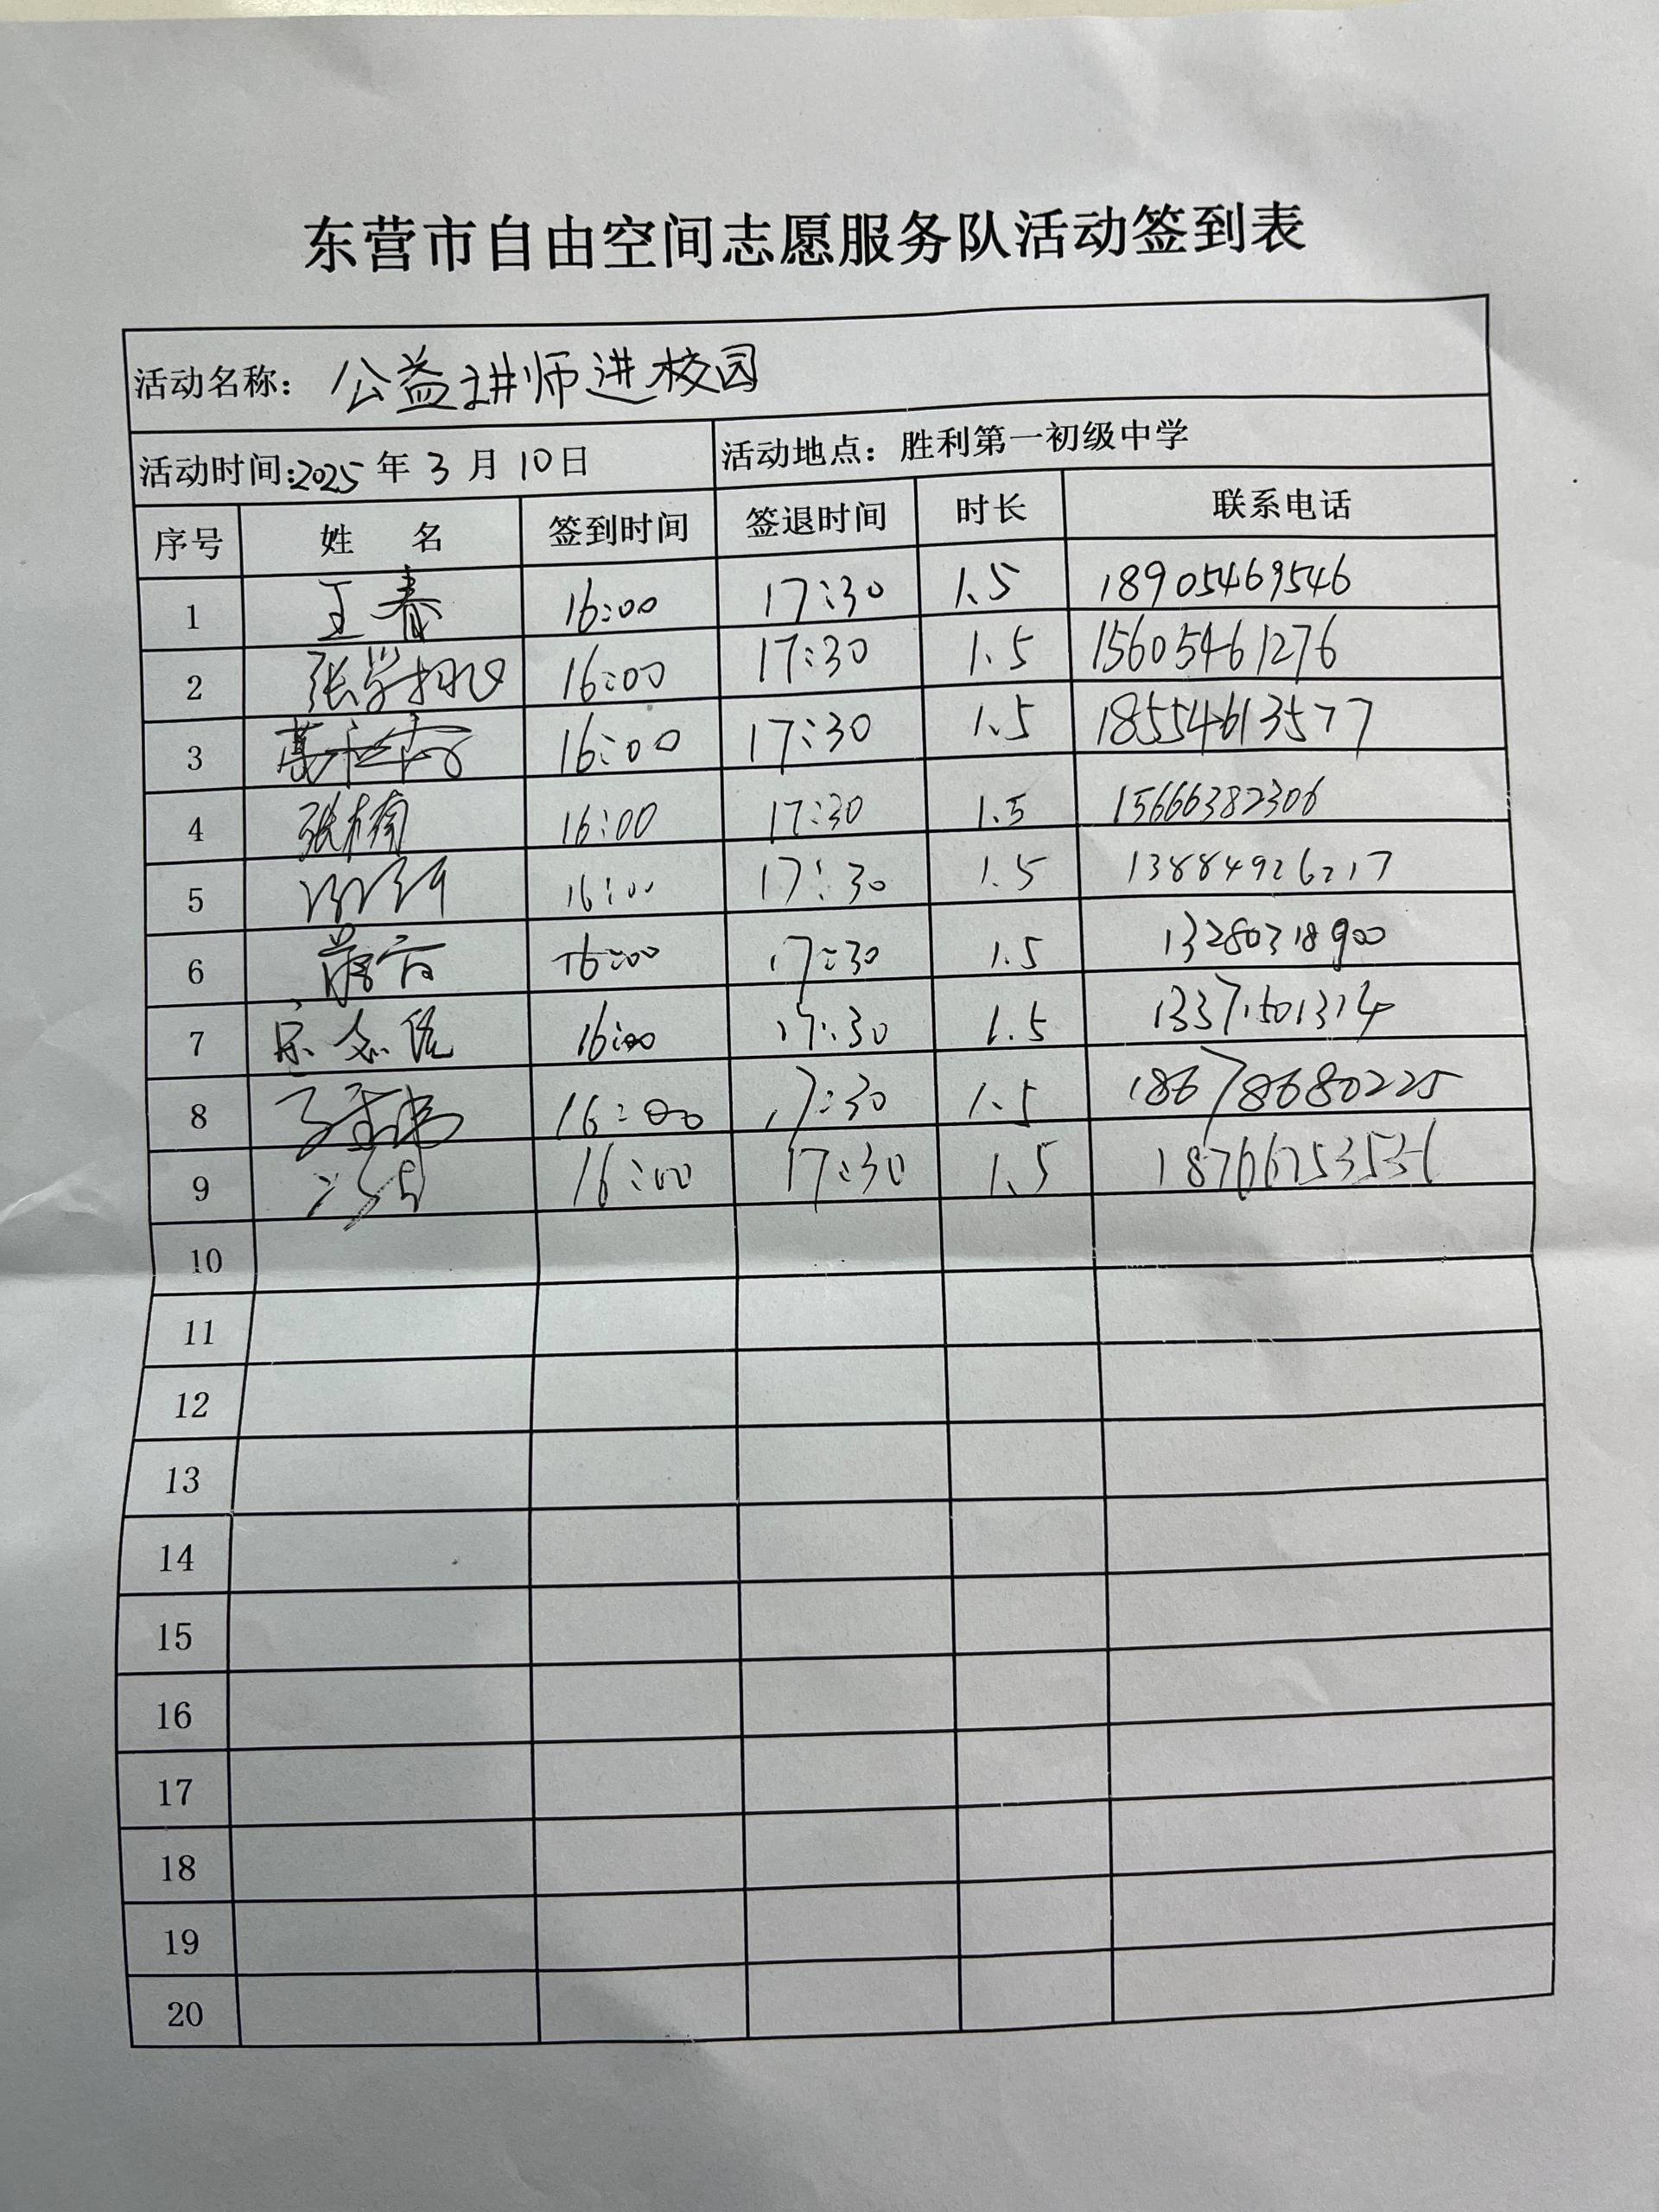 东营市自由空间志愿服务队活动签到表
活动名称: 公益讲师进校园
活动时间:2025年3月10日 活动地点: 胜利第一初级中学
序号 姓 名 签到时间 签退时间 时长 联系电话
1 王春 16:00 17:30 1.5 18905469546
2 张学 16:00 17:30 1.5 15605461276
3 16:00 17:30 1.5 18554613577
4 张楠 16:00 17:30 1.5 15666382306
5 16:00 17:30 1.5 13884926217
6 16:00 17:30 1.5 13280318900
7 16:00 17:30 1.5 13371501314
8 16:00 17:30 1.5 18678680225
9 16:00 17:30 1.5
10
11
12
13
14
15
16
17
18
19
20